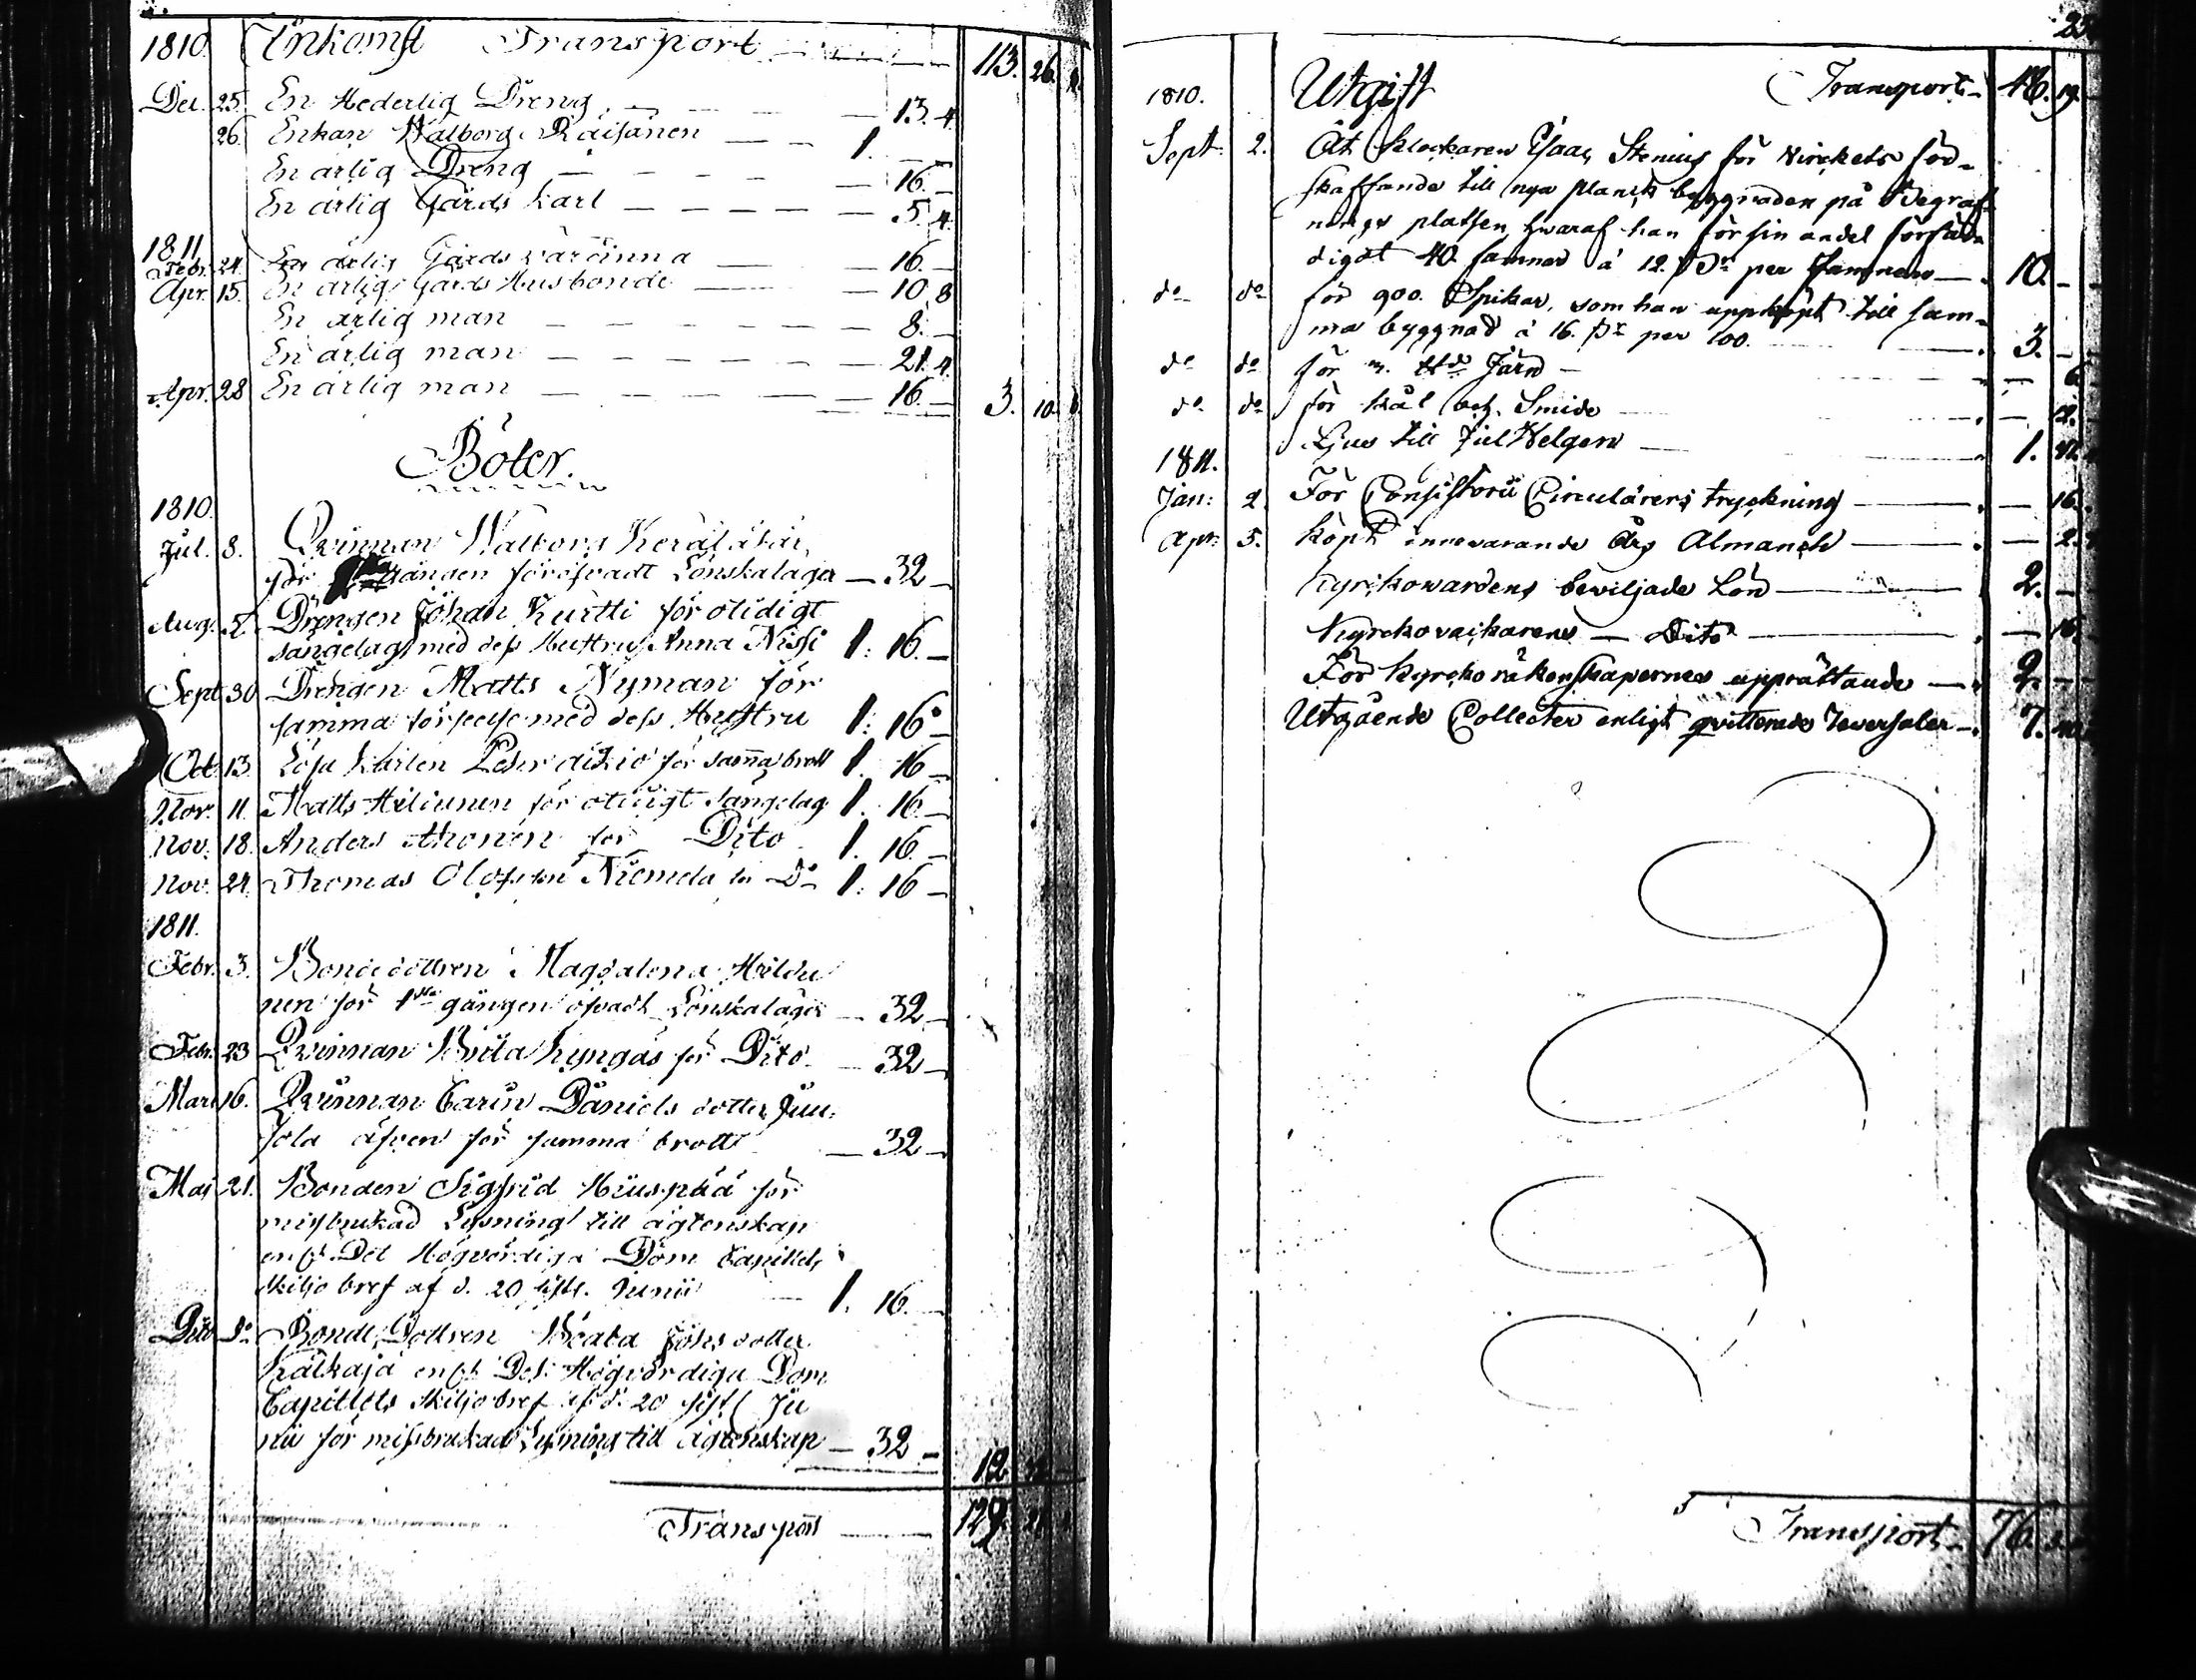 1810. Inkomst Transport 113. 26.
Dec. 25. En Hederlig Dreng — 13. 4
26. Enkan Walborg Räisänen — 1. —
En ärlig Dreng — 16. —
En ärlig Gårds karl — 5. 4.
1811
Febr. 24. En ärlig Gårds värdinna — 16. —
Apr. 15. En ärlig Gårds Husbonde — 10. 8
En ärlig man — 8. —
En ärlig man — 21. 4.
Apr. 28 En ärlig man — 16. — 3. 10.
Böter.
1810.
Jul. 8. Qvinnan Walborg
för gången föröfvadt Lönskaläger — 32 —
Aug. 5. Drengen Johan Kurtti för otidigt
sängelag med dess Hustru Anna Nissi 1: 16. —
Sept 30 Drengen Matts Nyman för
samma förseelse med dess Hustru 1: 16 —
Oct. 13. Lösa Karlen Pehr för samma brott 1. 16 —
Nov. 11. Matts Hiltunen för otidigt sängelag 1. 16. —
Nov. 18. Anders Ahonen för Dito 1. 16. —
Nov. 24. Thomas Olofsson Niemelä för Do 1: 16 —
1811.
Febr. 3. Bondedottren Magdalena Hiltu
nen för 1sta gången öfvadt Lönskaläger — 32 —
Febr. 23 Qvinnan Brita Kyngäs för Dito — 32 —
Mars 16. Qvinnan Carin Daniels dotter Juu-
sola äfven för samma brott — 32 —
Maj 21. Bonden Sigfrid Hiuspää för
missbrukad Lysning till ägtenskap
enl. Det Högvördiga Dom Capitlets
skiljobref af d. 20 sistl. Junii — 1. 16. —
Dito do Bonde Dottren Beata Johs dotter
Kälkäjä enl. Det Högvördiga Dom
Capitlets skiljobref af d. 20 sistl. Ju
nii för missbrukad Lysning till ägtenskap — 32 — 12.
Transport — 129.
1810. Utgift Transport — 46. 19.
Sept. 2. Åt klockaren Isaac Stenius för virckets för-
skaffande till nya planck byggnaden på Begraf-
nings platsen, hwaraf han för sin andel förfär-
digat 40 famnar à 12. per famnen — 10. —
do do för 900. Spikar, som han uppköpt till sam-
ma byggnad à 16. per 100. — 3. —
do do för Järn — 6.
do do för kål och Smide — 12.
Ljus till Jul Helgen — 1.
1811.
Jan: 2. För Consistorii Circulärers tryckning — 16.
Apr. 5. köpt innevarande års Almanch — 2.
Kyrkowardens beviljade Lön — 2. —
Kyrckovaktarens — Dito — 16.
För Kyrcko räkenskapernes upprättande — 2. —
Utgående Collecter enligt qvitterade Reversaler — 7.
Transport — 76.